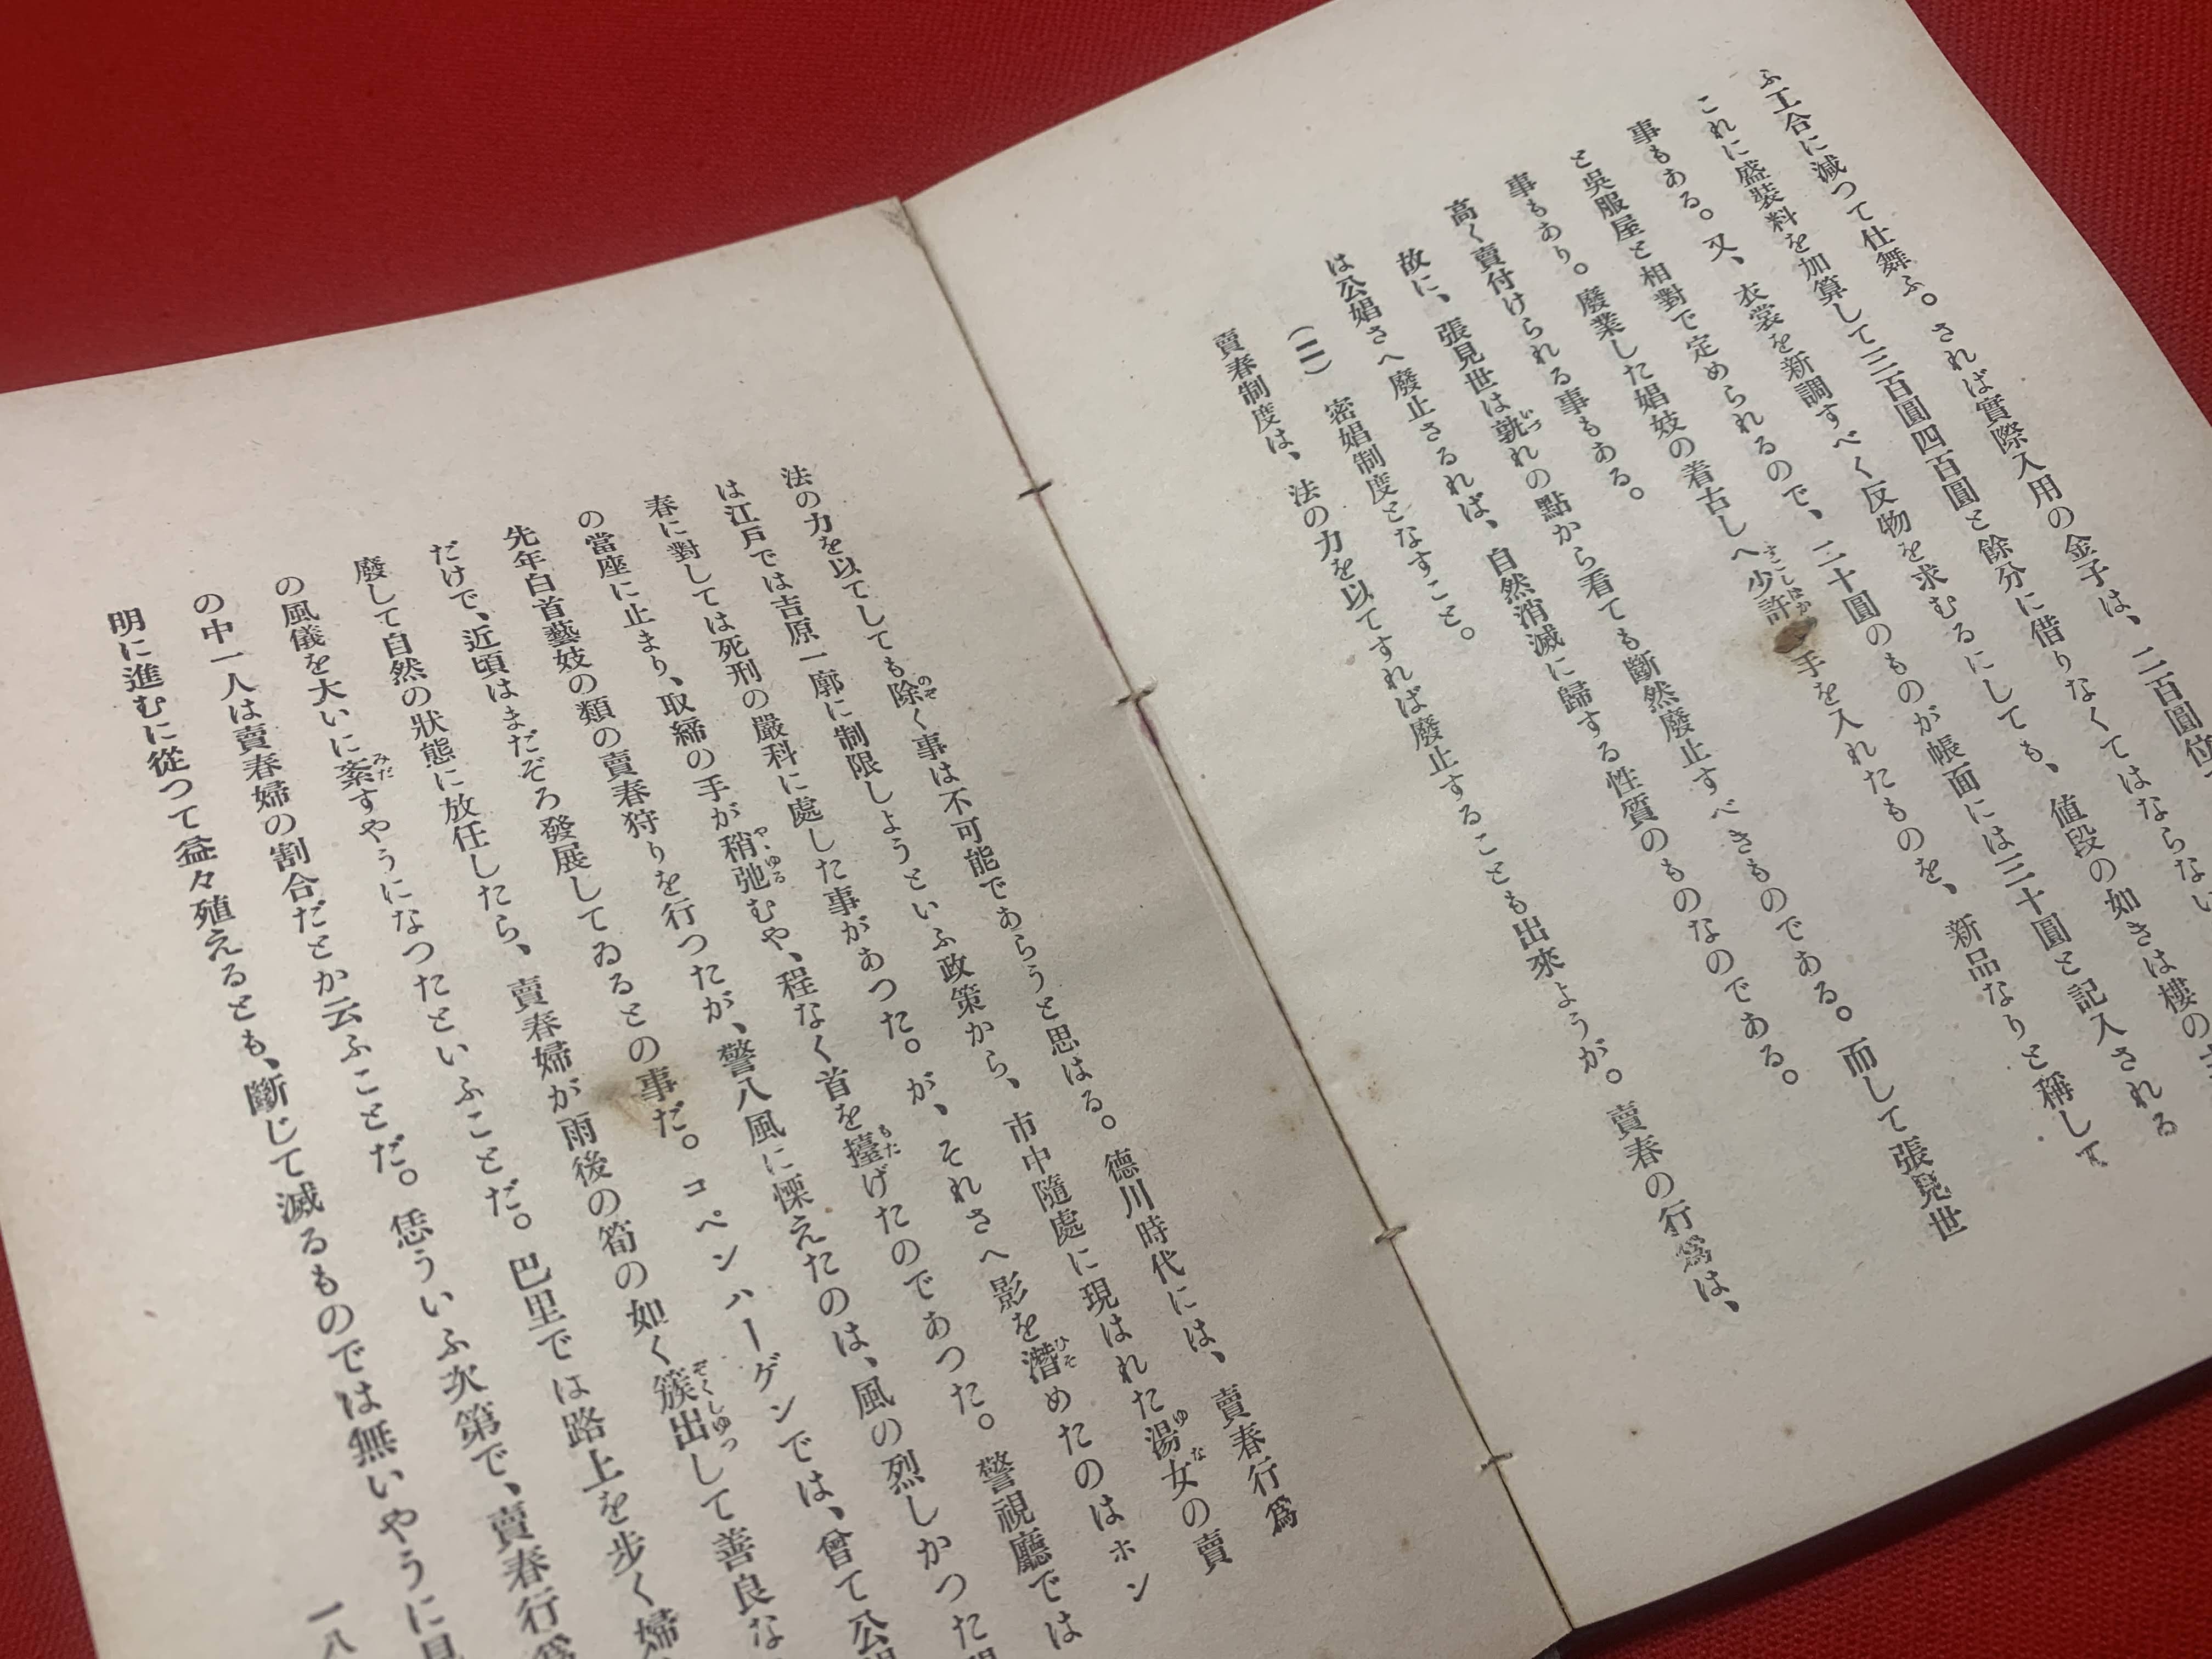 ふ工合に減つて仕舞ふ。されば實際入用の金子は、二百圓位
これに盛裝料を加算して三百圓四百圓と餘分に借りなくてはならない
事もある。又、衣裳を新調すべく反物を求むるにしても、値段の如きは樓の
と呉服屋と相對で定められるので、二十圓のものが帳面には三十圓と記入される
事もあり。廢業した娼妓の着古しへ少許手を入れたものを、新品なりと稱して
高く賣付けられる事もある。
故に、張見世は孰れの點から看ても斷然廢止すべきものである。而して張見世
は公娼さへ廢止さるれば、自然消滅に歸する性質のものなのである。
(二)　密娼制度となすこと。
賣春制度は、法の力を以てすれば廢止することも出來ようが。賣春の行爲は、
法の力を以てしても除く事は不可能であらうと思はる。德川時代には、賣春行爲
は江戸では吉原一廓に制限しようといふ政策から、市中隨處に現はれた湯女の賣
春に對しては死刑の嚴科に處した事があつた。が、それさへ影を潛めたのはホン
の當座に止まり、取締の手が稍弛むや、程なく首を擡げたのであつた。警視廳では
先年白首藝妓の類の賣春狩りを行つたが、警八風に慄えたのは、風の烈しかつた
だけで、近頃はまだぞろ發展してゐるとの事だ。コペンハーゲンでは、曾て公
廢して自然の狀態に放任したら、賣春婦が雨後の筍の如く簇出して善良な
の風儀を大いに紊すやうになつたといふことだ。巴里では路上を步く婦
の中一人は賣春婦の割合だとか云ふことだ。恁ういふ次第で、賣春行爲
明に進むに從つて益々殖えるとも、斷じて滅るものでは無いやうに
一八